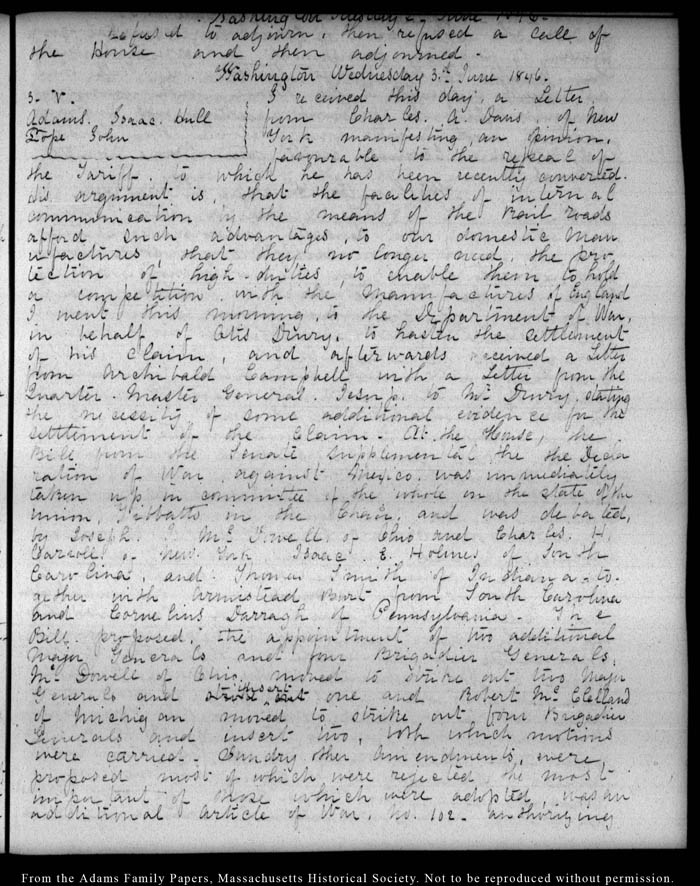 Washington Tuesday 2. June 1846.
refused to adjourn, then refused a call of
the House and then adjourned.
Washington Wednesday 3.d June 1846.
3. V.
Adams. Isaac. Hull
Pope John
I received this day, a Letter,
from Charles. A. Davis, of New
York manifesting an opinion,
favourable to the repeal of
the Tariff, to which he has been recently converted.
His argument is, that the facilities, of internal
communication by the means of the Rail roads
afford such advantages, to our domestic Man
ufactures, that they no longer need, the pro
tection of high-duties, to enable them to hold
a competition with the Manufactures of England
I went this morning, to the Department of War,
in behalf of Otis Drury, to hasten the settlement
of his claim, and afterwards received a Letter
from Archibald Campbell with a Letter from the
Quarter-Master General. Jesup, to Mr. Drury, stating
the necessity of some additional evidence for the
settlement of the Claim. At the House, the
Bill from the Senate Supplemental the the Decla
ration of War against Mexico was immediately
taken up in committee of the whole on the state of the
union, Tibbatts in the Chair, and was debated,
by Joseph. J. Mc.Dowell of Ohio and Charles. H.
Carroll of New. York Isaac. E. Holmes of South
Carolina, and Thomas Smith of Indiana, to-
gether with Armistead Burt from South Carolina
and Cornelius Darragh of Pennsylvania. The
Bill. proposed, the appointment of two additional
Major Generals and four Brigadier Generals,
Mc.Dowell of Ohio, moved to strike out two Major
Generals and strike out insert one and Robert Mc.Clelland
of Michigan moved to strike out four Brigadier
Generals and insert two, both which motions
were carried. Sundry other amendments, were,
proposed most of which were rejected, the most
important of those which were adopted, was an
additional Article of War, No. 102- authorizing
From the Adams Family Papers, Massachusetts Historical Society. Not to be reproduced without permission.